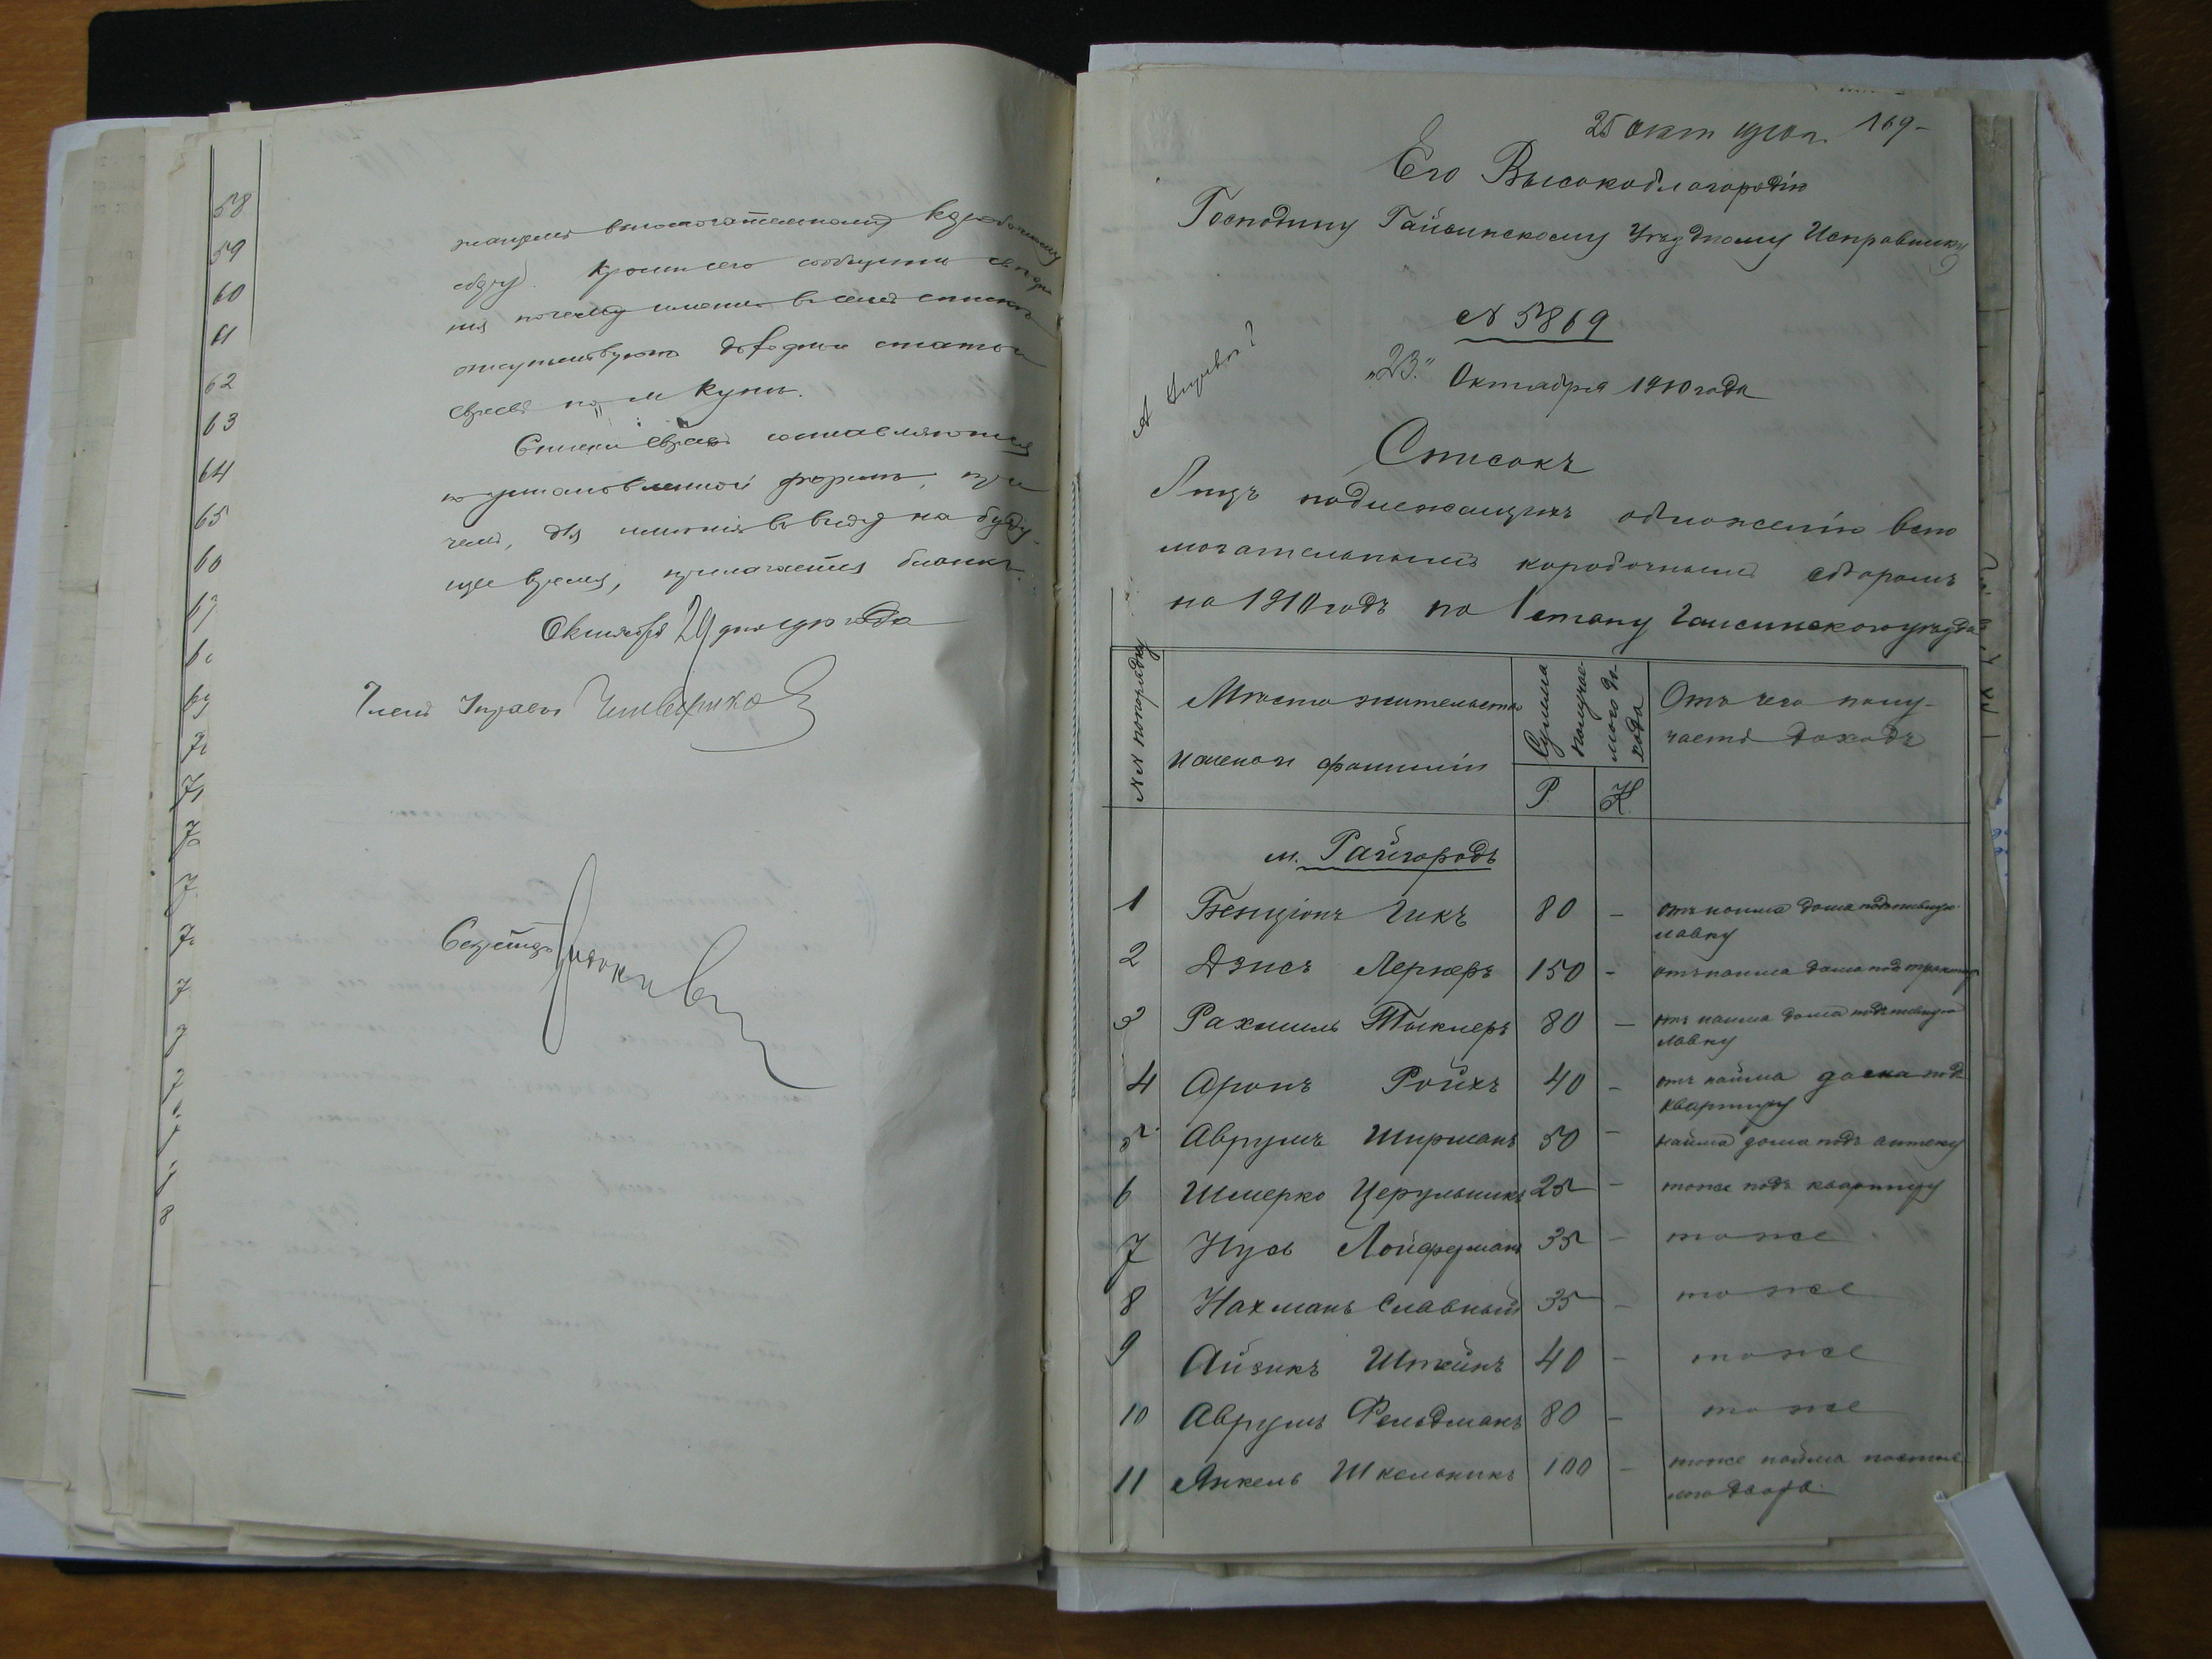 58
59
60
61
62
63
64
65
66
67
жащемъ вспомогательному коробочному
сбору. Кромѣ сего сообщить свѣдѣ
нія почему именно въ семъ спискѣ
отсутствуютъ доходныя статьи
евреевъ по м Кунѣ.
Списки евреевъ составляются
по установленной формѣ, при
чемъ, для имѣнія въ виду на буду-
щее время, прилагается бланкъ.
Октября 29 дня 1910 года
Членъ Управы
Секретарь
25 окт 1910 г. 169-
Его Высокоблагородію
Господину Гайсинскому Уѣздному Исправнику
№ 5869
"23" Октября 1910 года
Списокъ
Лицъ подлежащихъ обложенію вспо
могательнымъ коробочнымъ сборомъ
на 1910 годъ по 1 стану Гайсинскаго уѣзда
№№ по порядку
Мѣсто жительства
имена и фамиліи
Сумма
получае-
маго до-
хода
Р
К.
Отъ чего полу-
чаетъ доходъ
м. Райгородъ
1 Бенціонъ Гикъ 80 - отъ найма дома подъ пивную
лавку
2 Дзись Лернеръ 150 - отъ найма дома под трактир
3 Рахмиль Тыклеръ 80 - отъ найма дома подъ пивную
лавку
4 Аронъ Ройхъ 40 - отъ найма дома подъ
квартиру
5 Аврумъ Ширманъ 50 - найма дома подъ аптеку
6 Шмерко Церульникъ 25 - тоже подъ квартиру
7 Нусь Лойферманъ 35 - тоже
8 Нахманъ Славный 35 - тоже
9 Айзикъ Штейнъ 40 - тоже
10 Аврумъ Фельдманъ 80 - тоже
11 Янкель Школьникъ 100 - тоже найма постоя
лаго двора.